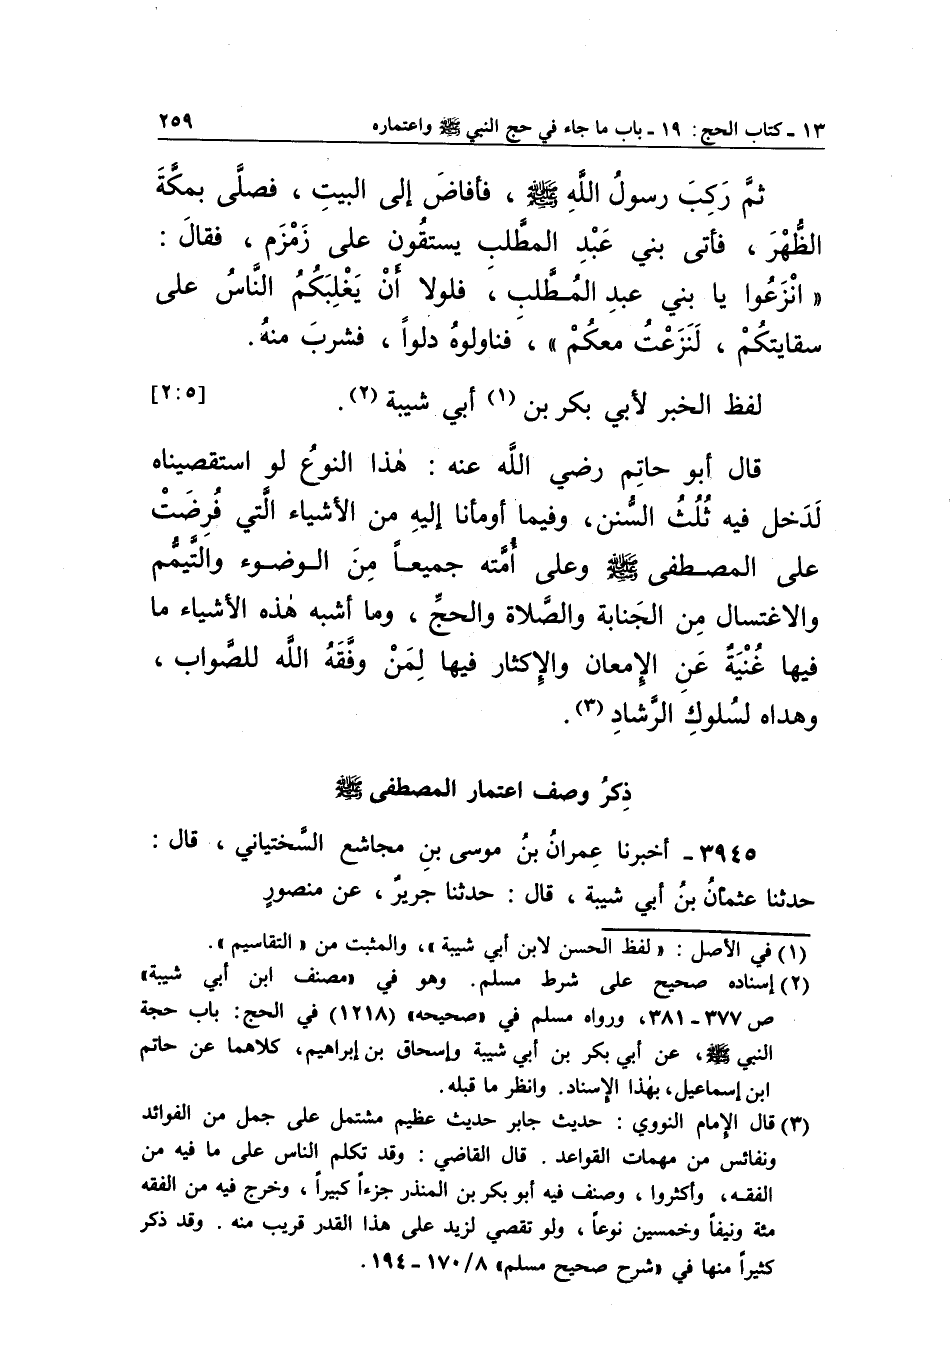 ١٣ - كتاب الحج: ١٩ - باب ما جاء في حج النبي ﷺ واعتماره ٢٥٩
ثمَّ رَكِبَ رسولُ اللَّهِ ﷺ ، فأفاضَ إلى البيتِ ، فصلَّى بمكَّةَ
الظُّهْرَ ، فأتى بني عَبْدِ المطَّلبِ يستقُون على زَمْزَم ، فقالَ :
« انْزَعُوا يا بني عبدِ المُطَّلبِ ، فلولا أَنْ يَغْلِبَكُمُ النَّاسُ على
سقايتكُمْ ، لَنَزَعْتُ معكُمْ » ، فناولوهُ دلواً ، فشربَ منهُ.
لفظ الخبر لأبي بكر بن (١) أبي شيبة (٢). [٢:٥]
قال أبو حاتِم رضي اللَّه عنه : هٰذا النوعُ لو استقصيناه
لَدَخل فيه ثُلُثُ السُّنن، وفيما أومأنا إليهِ من الأشياء الَّتي فُرِضَتْ
على المصطفى ﷺ وعلى أُمَّته جميعاً مِنَ الوضوء والتَّيمُّم
والاغتسال مِن الجَنابة والصَّلاة والحجِّ ، وما أشبه هٰذه الأشياء ما
فيها غُنْيَةٌ عَنِ الإِمعان والإِكثار فيها لِمَنْ وفَّقَهُ اللَّه للصَّواب ،
وهداه لسُلوكِ الرَّشادِ (٣).
ذِكرُ وصف اعتمار المصطفى ﷺ
٣٩٤٥ - أخبرنا عِمرانُ بنُ موسى بنِ مجاشع السَّختياني ، قال :
حدثنا عثمانُ بنُ أبي شيبة ، قال : حدثنا جريرٌ ، عن منصورٍ
(١) في الأصل : « لفظ الحسن لابن أبي شيبة »، والمثبت من « التقاسيم ».
(٢) إسناده صحيح على شرط مسلم. وهو في «مصنف ابن أبي شيبة»
ص ٣٧٧ - ٣٨١، ورواه مسلم في «صحيحه» (١٢١٨) في الحج: باب حجة
النبي ﷺ، عن أبي بكر بن أبي شيبة وإسحاق بن إبراهيم، كلاهما عن حاتم
ابن إسماعيل، بهٰذا الإِسناد. وانظر ما قبله.
(٣) قال الإِمام النووي : حديث جابر حديث عظيم مشتمل على جمل من الفوائد
ونفائس من مهمات القواعد . قال القاضي : وقد تكلم الناس على ما فيه من
الفقه، وأكثروا ، وصنف فيه أبو بكر بن المنذر جزءاً كبيراً ، وخرج فيه من الفقه
مئة ونيفاً وخمسين نوعاً ، ولو تقصي لزيد على هذا القدر قريب منه . وقد ذكر
كثيراً منها في «شرح صحيح مسلم» ١٧٠/٨ - ١٩٤.